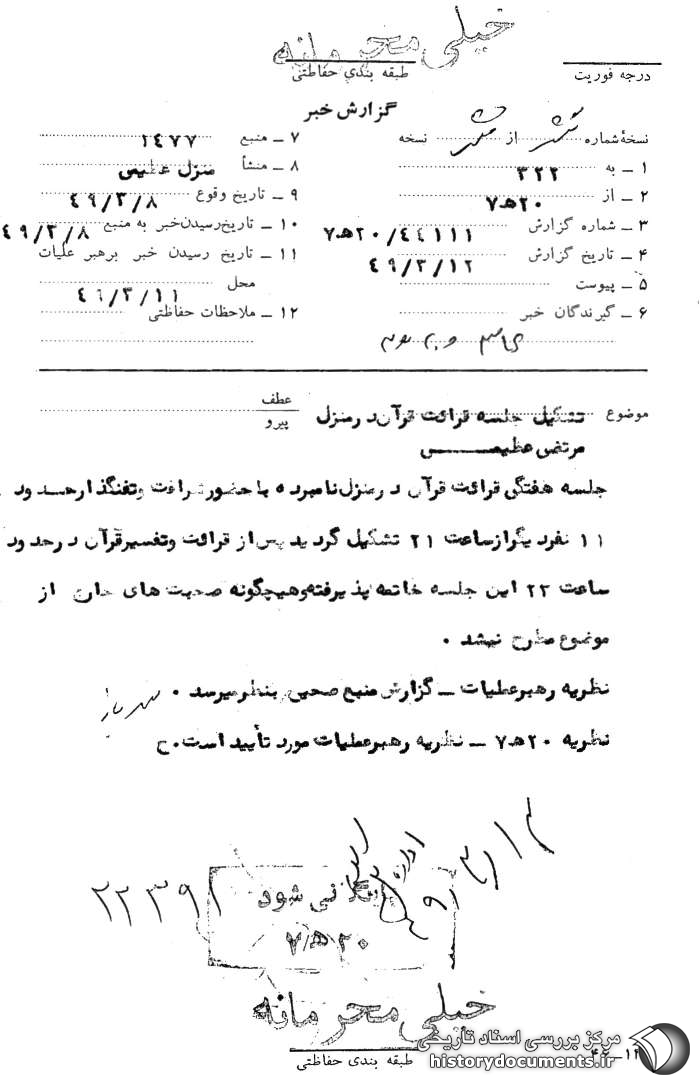 خیلی محرمانه
درجه فوریت
طبقه بندی حفاظتی
گزارش خبر
نسخهٔ شماره شش از شش نسخه
۱ ـ به ۳۲۲
۲ ـ از ۲۰ﻫ۷
۳ ـ شماره گزارش ۷ﻫ۲۰/۴۴۱۱۱
۴ ـ تاریخ گزارش ۴۹/۳/۱۲
۵ ـ پیوست
۶ ـ گیرندگان خبر
۷ ـ منبع ۱۴۷۷
۸ ـ منشأ منزل عظیمی
۹ ـ تاریخ وقوع ۴۹/۳/۸
۱۰ ـ تاریخ رسیدن خبر به منبع ۴۹/۳/۸
۱۱ ـ تاریخ رسیدن خبر برهبر عملیات
محل ۴۹/۳/۱۱
۱۲ ـ ملاحظات حفاظتی
موضوع تشکیل جلسه قرائت قرآن در منزل
مرتضی عظیمی
عطف
پیرو
جلسه هفتگی قرائت قرآن در منزل نامبرده با حضور شرافت و تفنگدار حدود
۱۱ نفر دیگر از ساعت ۲۱ تشکیل گردید پس از قرائت و تفسیر قرآن در حدود
ساعت ۲۳ این جلسه خاتمه پذیرفته و هیچگونه صحبت های خارج از
موضوع مطرح نمیشد ۰
نظریه رهبر عملیات ـ گزارش منبع صحیح بنظر میرسد ۰
نظریه ۲۰ﻫ۷ ـ نظریه رهبر عملیات مورد تأیید است. ح
۴۹/۳/۱۳
۲۲۳۹۱
نمی شود
۲۰ﻫ۷
خیلی محرمانه
طبقه بندی حفاظتی
مرکز بررسی اسناد تاریخی
historydocuments.ir